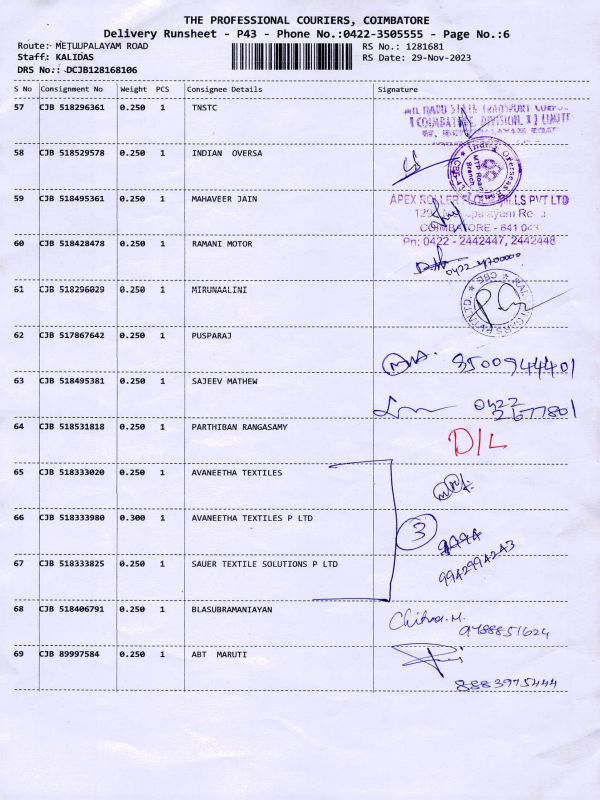 THE PROFESSIONAL COURIERS, COIMBATORE
Delivery Runsheet - P43 - Phone No.:0422-3505555 - Page No.:6
Route: METUUPALAYAM ROAD
RS No.: 1281681
Staff: KALIDAS
RS Date: 29-Nov-2023
DRS No.: DCJB128168106
S No Consignment No Weight PCS Consignee Details Signature
57 CJB 518296361 0.250 1 TNSTC
58 CJB 518529578 0.250 1 INDIAN OVERSA
59 CJB 518495361 0.250 1 MAHAVEER JAIN
APEX ROLLER FLOUR MILLS PVT LTD
COIMBATORE - 641 043
60 CJB 518428478 0.250 1 RAMANI MOTOR
Pn: 0422 - 2442447, 2442448
61 CJB 518296029 0.250 1 MIRUNAALINI
62 CJB 517867642 0.250 1 PUSPARAJ
8500944401
63 CJB 518495381 0.250 1 SAJEEV MATHEW
0422
2677801
64 CJB 518531818 0.250 1 PARTHIBAN RANGASAMY
D/L
65 CJB 518333020 0.250 1 AVANEETHA TEXTILES
66 CJB 518333980 0.300 1 AVANEETHA TEXTILES P LTD
3
67 CJB 518333825 0.250 1 SAUER TEXTILE SOLUTIONS P LTD
9942994243
68 CJB 518406791 0.250 1 BLASUBRAMANIAYAN
Chitra.M.
9788851624
69 CJB 89997584 0.250 1 ABT MARUTI
8883975444